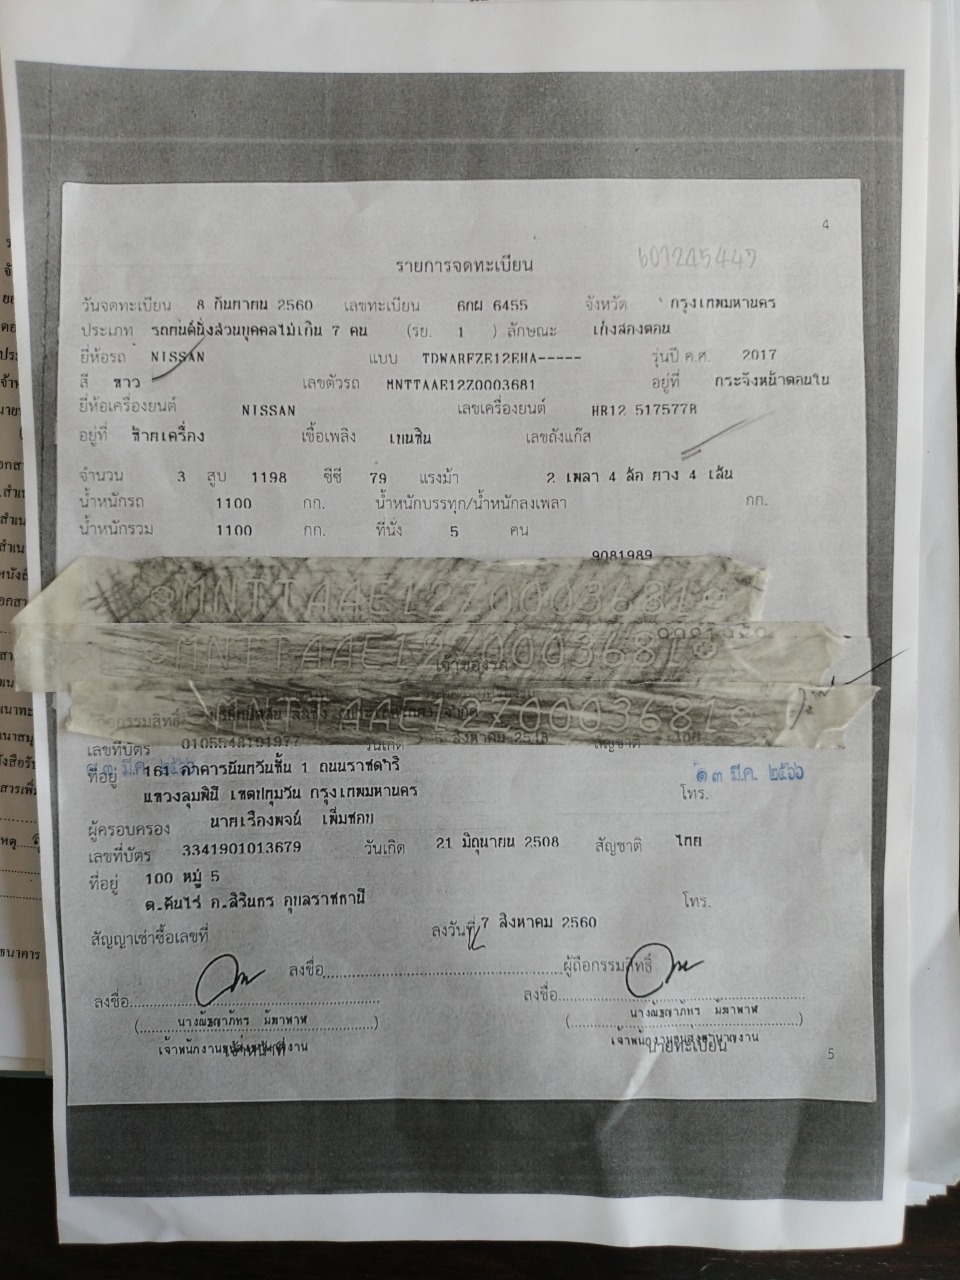 4
รายการจดทะเบียน 601245447
วันจดทะเบียน 8 กันยายน 2560 เลขทะเบียน 6กผ 6455 จังหวัด กรุงเทพมหานคร
ประเภท รถยนต์นั่งส่วนบุคคลไม่เกิน 7 คน (รย. 1 ) ลักษณะ เก๋งสองตอน
ยี่ห้อรถ NISSAN แบบ TDWARFZE12EHA----- รุ่นปี ค.ศ. 2017
สี ขาว เลขตัวรถ MNTTAAE12Z0003681 อยู่ที่ กระจังหน้าตอนใน
ยี่ห้อเครื่องยนต์ NISSAN เลขเครื่องยนต์ HR12 517577B
อยู่ที่ ซ้ายเครื่อง เชื้อเพลิง เบนซิน เลขถังแก๊ส
จำนวน 3 สูบ 1198 ซีซี 79 แรงม้า 2 เพลา 4 ล้อ ยาง 4 เส้น
น้ำหนักรถ 1100 กก. น้ำหนักบรรทุก/น้ำหนักลงเพลา กก.
น้ำหนักรวม 1100 กก. ที่นั่ง 5 คน
9081989
MNTTAAE12Z0003681
MNTTAAE12Z0003681
เจ้าของรถ
MNTTAAE12Z0003681
ผู้ถือกรรมสิทธิ์
เลขที่บัตร 0105548191977 วันเกิด สิงหาคม สัญชาติ ไทย
ที่อยู่ 161 อาคารนันทวันชั้น 1 ถนนราชดำริ
๑๓ มี.ค. ๒๕๖๖ ๑๓ มี.ค. ๒๕๖๖
แขวงลุมพินี เขตปทุมวัน กรุงเทพมหานคร โทร.
ผู้ครอบครอง นายเรืองพจน์ เพิ่มชอบ
เลขที่บัตร 3341901013679 วันเกิด 21 มิถุนายน 2508 สัญชาติ ไทย
ที่อยู่ 100 หมู่ 5
ต.คันไร่ อ.สิรินธร อุบลราชธานี โทร.
สัญญาเช่าซื้อเลขที่ ลงวันที่ 7 สิงหาคม 2560
ลงชื่อ ผู้ถือกรรมสิทธิ์
ลงชื่อ ลงชื่อ
(นางณัฐญาภัทร มัฆาพาฬ) (นางณัฐญาภัทร มัฆาพาฬ)
เจ้าพนักงานขนส่งชำนาญงาน เจ้าพนักงานขนส่งชำนาญงาน
เจ้าหน้าที่ นายทะเบียน
5